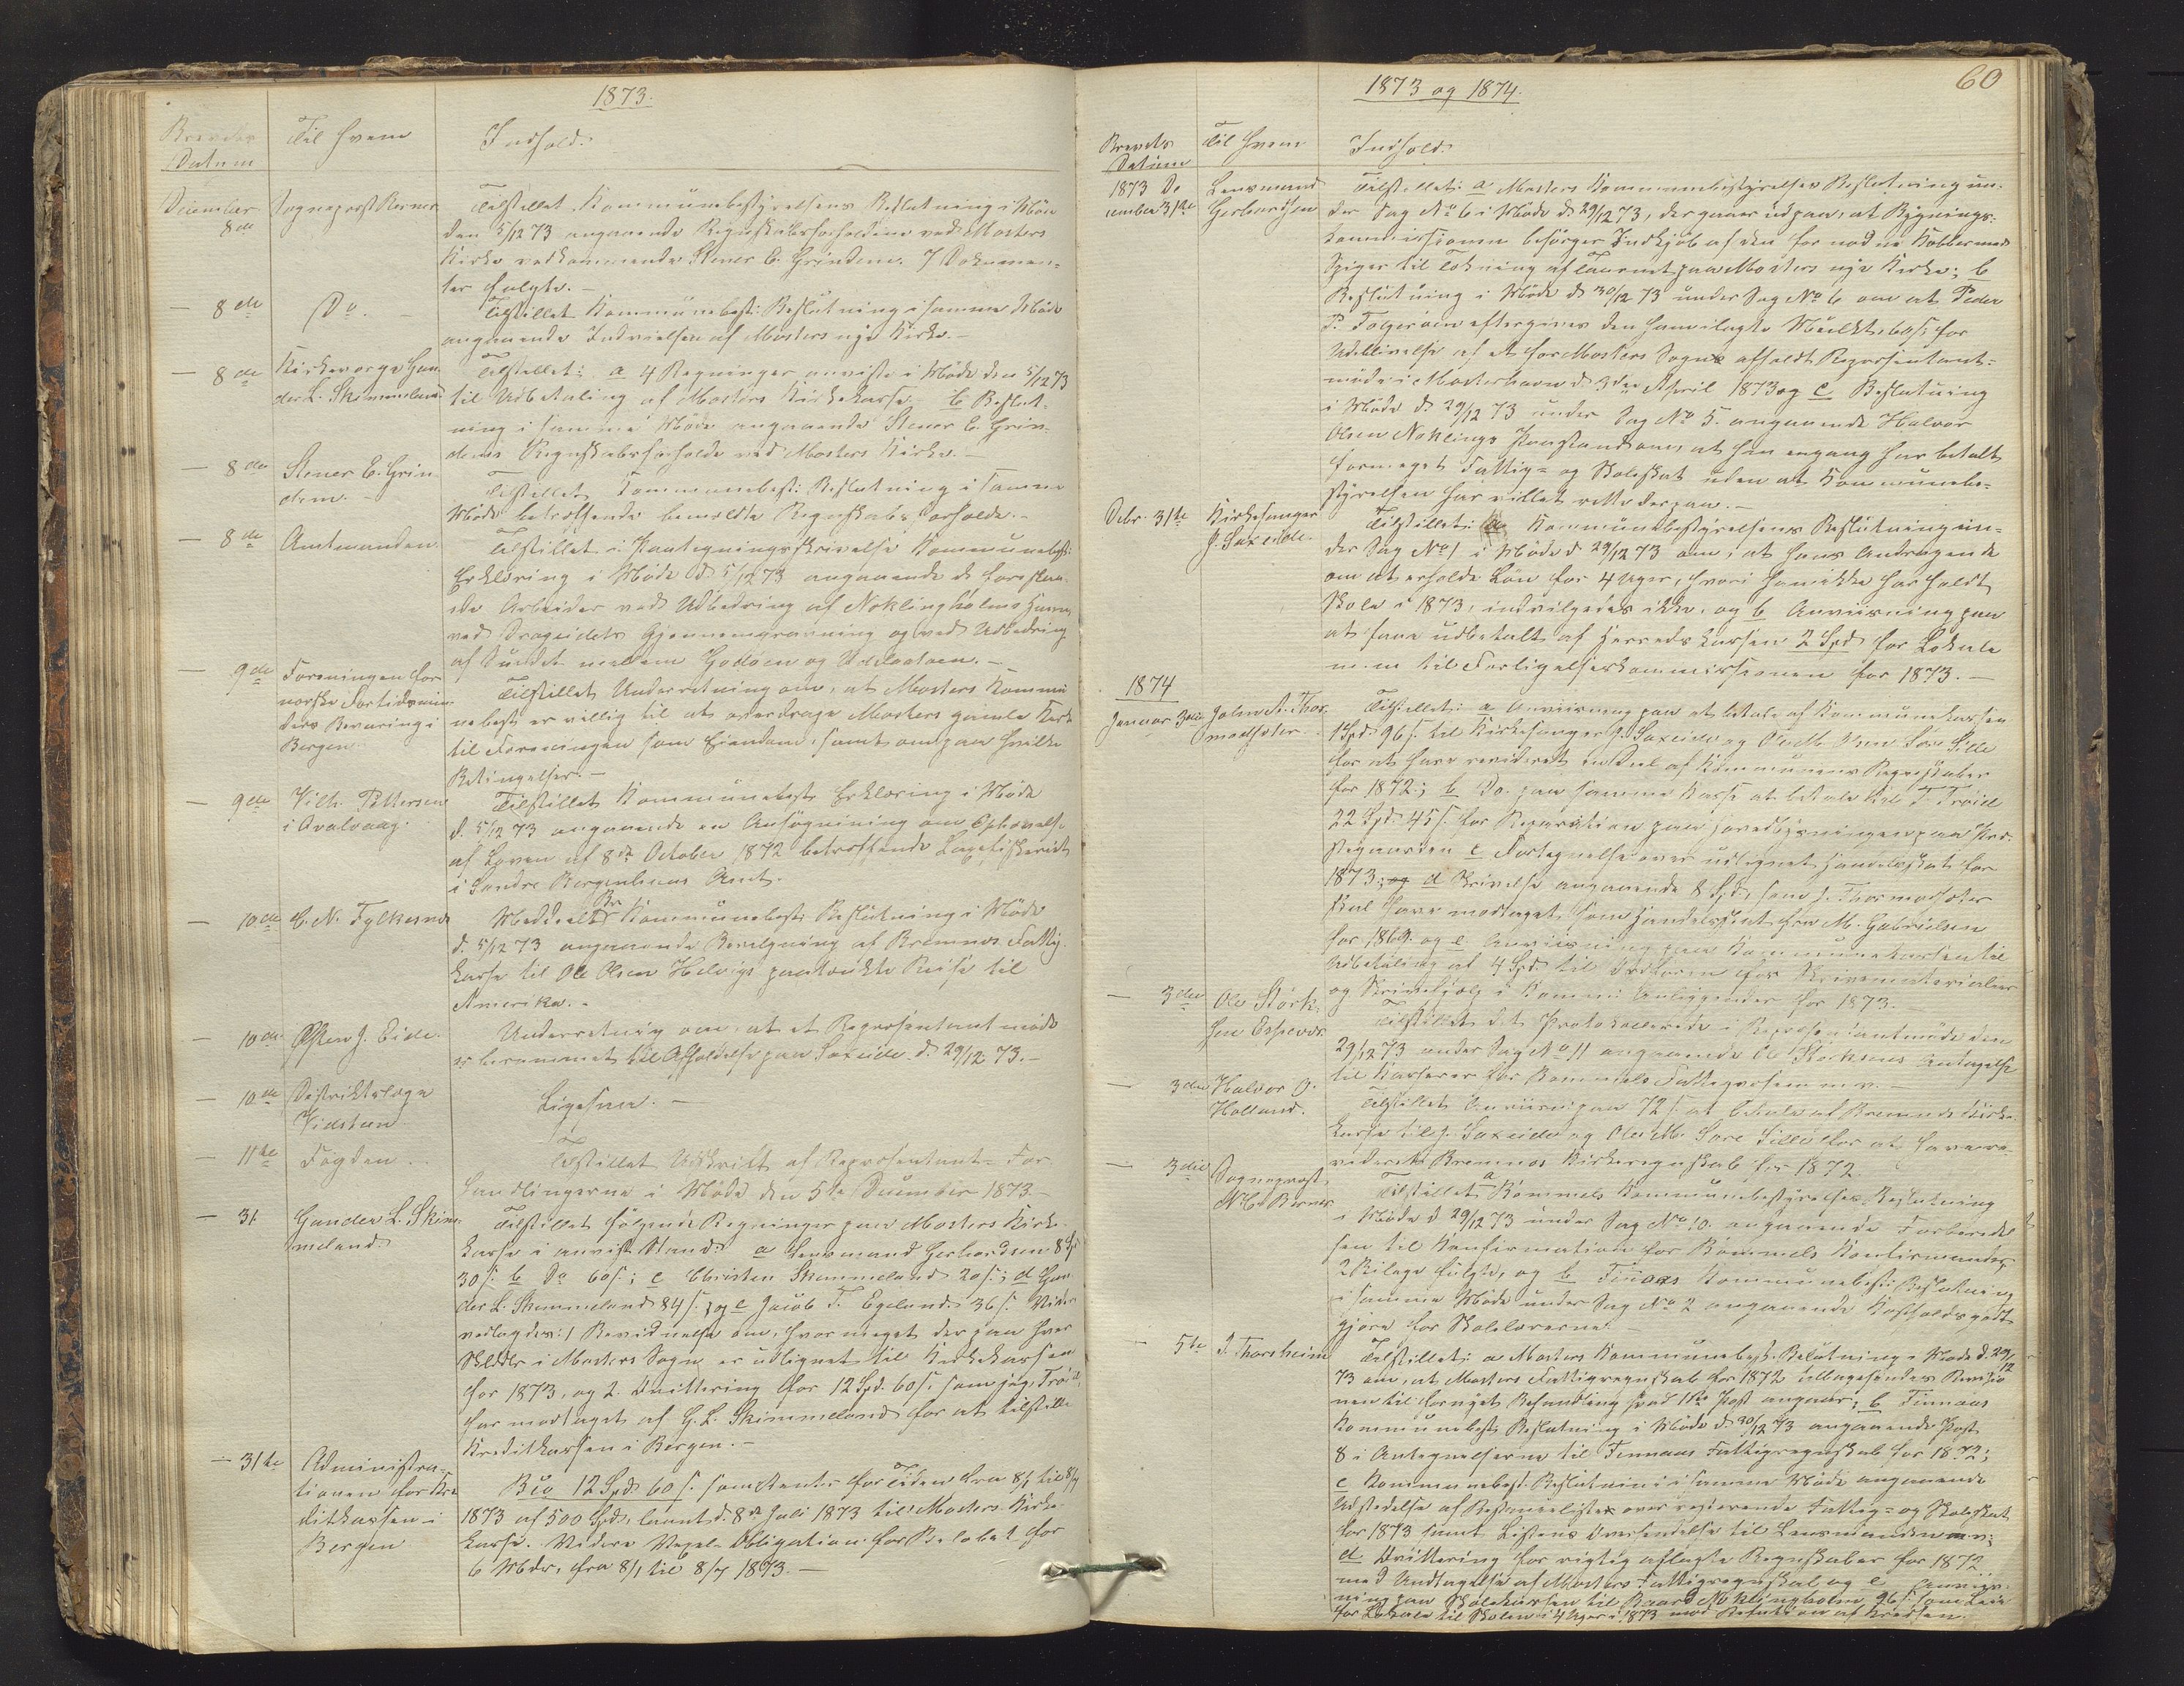 1873.
Brevets
Datum
Til hvem
Indhold.
December
8de
Sogneprest Kerner
Tilstillet Kommunebestyrelsens Beslutning i Møde
den 5/12 73 angaaende Regnskabsforholdene ved Mosters
Kirke vedkommende Stener E. Grindem. 7 Dokumen-
ter fulgte.-
- 8de
Do. -
Tilstillet Kommunebest: Beslutning i samme Møde
angaaende Indvielsen af Mosters nye Kirke.-
- 8de
Kirkeværge Gun-
der L. Skimmeland
Tilstillet: a 4 Regninger anviste i Møde den 5/12 73
til Udbetaling af Mosters Kirkekasse. b Beslut-
ning i samme Møde angaaende Stener E. Grin-
dems Regnskabsforholde ved Mosters Kirke.-
- 8de
Stener E. Grin
dem.-
Tilstillet Kommunebest: Beslutning i samme
Møde betræffende bemeldte Regnskabsforholde.-
- 8de
Amtmanden
Tilstillet i Paategningsskrivelse Kommunebest:
Erklæring i Møde d. 5/12 73 angaaende de forestaa-
ende Arbeider ved Udbedring af Noklingholms Havn,
ved Dragseidets Gjennemgravning og ved Udbedring
af Sundet mellem Goddoen og
- 9de
Foreningen for
norske Fortidsmin
ders Bevaring i
Bergen
Tilstillet Underretning om, at Mosters Kommu
nebest: er villig til at overdrage Mosters gamle Kirke
til Foreningen som Eiendom, samt om paa hvilke
Betingelser.-
- 9de
Vilh. Pettersen
i Qvalvaag.
Tilstillet Kommunebest: Erklæring i Møde
d. 5/12 73 angaaende en Ansøgning om Ophævelse
af Loven af 8de October 1872 betræffende
i Søndre Bergenhuus Amt.
- 10de
E. N. Fylkesnes
Meddeelt Br Kommunebest: Beslutning i Møde
d. 5/12 73 angaaende Bevilgning af Bremnes Fattig-
kasse til Ole Olsen Helvigs paatænkte Reise til
Amerika.-
- 10de
Østen J. Eide.
Underretning om, at et Repræsentantmøde
er berammet til Afholdelse paa Saxeide d. 29/12 73.-
- 10de
Distriktslæge
Vidsteen
Ligesaa.-
- 11te
Fogden.
Tilstillet Udskrift af Repræsentant-For
handlingerne i Møde den 5te December 1873.-
- 31
Gunder L. Skim
meland.
Tilstillet følgende Regninger paa Mosters Kirke-
kasse i anvist Stand: a Lensmand Gerhardsen 8 Spd
30 s. b Do 60 s.; c Christen Skimmeland 20 s.; d Gun-
der L. Skimmeland 84 s. og e Jacob T. Egeland 36 s. Videre
vedlagdes: 1 Bevidnelse om, hvor meget der paa hver
Skylddlr i Mosters Sogn er udlignet til Kirkekassen
for 1873, og 2. Qvittering for 12 Spd. 60 s. som jeg,
har modtaget af G. L. Skimmeland for at tilstille
Kreditkassen i Bergen.-
- 31te
Administra-
tionen for Kre
ditkassen i
Bergen
Bio 12 Spd. 60 s. som Rente for Tiden fra 8/1 til 8/7
1873 af 500 Spd. laant d. 8de Juli 1873 til Mosters Kirke-
kasse. Videre Vexel-Obligation for Beløbet for
6 Mdr. fra 8/1 til 8/7 1873.-
60
1873 og 1874.
Brevets
Datum
Til hvem
Indhold.
1873 De-
cember 31te
Lensmand
Gerhardsen
Tilstillet: a Mosters Kommunebestyrelses Beslutning un-
der Sag No 6 i Møde d. 29/12 73, der gaaer ud paa, at Bygnings-
kommissionen besørger Indkjøb af den for nødne Kobber med
Spiger til Tækning af Taarnet paa Mosters nye Kirke; b
Beslutning i Møde d. 30/12 73 under Sag No 6 om at Peder
P. Folgerøen eftergives den ham ilagte Mulkt 60 s. for
Udeblivelse af et for Mosters Sogn afholdt Repræsentant-
møde i Mosterhavn d. 3die April 1873 og c Beslutning
i Møde d. 29/12 73 under Sag No 5. angaaende Halvor
Olsen Noklings Paastand om, at han engang har betalt
formeget Fattig- og Skoleskat uden at Kommunebe-
styrelsen har villet rette derpaa.-
Debr. 31te
Kirkesanger
J. Saxeide.
Tilstillet: a Kommunebestyrelsens Beslutning un-
der Sag No 1 i Møde d. 29/12 73 om, at hans Andragende
om at erholde Løn for 4 Uger, hvori han ikke har holdt
Skole i 1873, indvilgedes ikke, og b Anviisning paa
at faae udbetalt af Herredskassen 2 Spd. for Lokale
m. m. til Forligelseskommissionen for 1873.-
1874
Januar 3die
John A. Thor-
modsæter
Tilstillet: a Anviisning paa at betale af Kommunekassen
1 Spd. 96 s. til Kirkesanger J. Saxeide og Ole M. Olsen Sore Lille
for at have revideret en Deel af Kommunens Regnskaber
for 1872; b Do. paa samme Kasse at betale
22 Spd. 45 s. for Reparation paa Hovedbygningen paa Præ-
stegaarden c Fortegnelse over udlignet Handelsskat for
1873; og d Skrivelse angaaende 8 Spd., som J. Thormodsæter
skal have modtaget som Handelsskat fra M. Gabrielsen
for 1869. og e Anviisning paa Kommunekassen til
Udbetaling af 4 Spd. til Ordføren for Skrivematerialier
og Skrivehjælp i Kommu: Anliggender for 1873.-
- 3die
Ole Størk-
sen Espevær
Tilstillet det Protokollerede i Repræsentantmøde den
29/12 73 under Sag No 11 angaaende Ole Størksens Antagelse
til Kasserer for Bømmels Fattigvæsen m. v.-
- 3die
Halvor O.
Holland.
Tilstillet Anviisn. paa 72 s. at betale af Bremnes Kirke-
kasse til J. Saxeide og Ole M. Sore Lille for at have re-
videret Bremnes Kirkeregnskab for 1872.
- 3die
Sogneprest
N. C. Kerner
Tilstillet a Bømmels Kommunebestyrelses Beslutning
i Møde d. 29/12 73 under Sag No 10. angaaende Forberedel
sen til Konfirmation for Bømmels Konfirmander,
2 Bilage fulgte, og b Finaas Kommunebest: Beslutning
i samme Møde under Sag No 2 angaaende Kostholdsgodt-
gjøre for Skolelærerne.-
- 5te
J. Thorsheim
Tilstillet: a Mosters Kommunebest. Beslutning i Møde d. 29/12
73 om, at Mosters Fattigregnskab for 1872 tilbagesendes Revisio
nen til fornyet Behandling hvad 1ste Post angaaer; b Finnaas
Kommunebest: Beslutning i Møde d. 30/12 73 angaaende Post
8 i Antegnelserne til Finnaas Fattigregnskab for 1872;
c Kommunebest. Beslutning i samme Møde angaaende
Udstedelse af Restanceliste over resterende Fattig- og Skoleskat
for 1873 samt Listens Oversendelse til Lensmanden m. v;
d Qvittering for rigtig aflagte Regnskaber for 1872
med Undtagelse af Mosters Fattigregnskab og e Anviis-
ning paa Skolekassen til Baard Noklingholm 96 s. som Leie
for Lokale til Skolen i 4 Uger i 1873 mod Refusion af Kredsen.